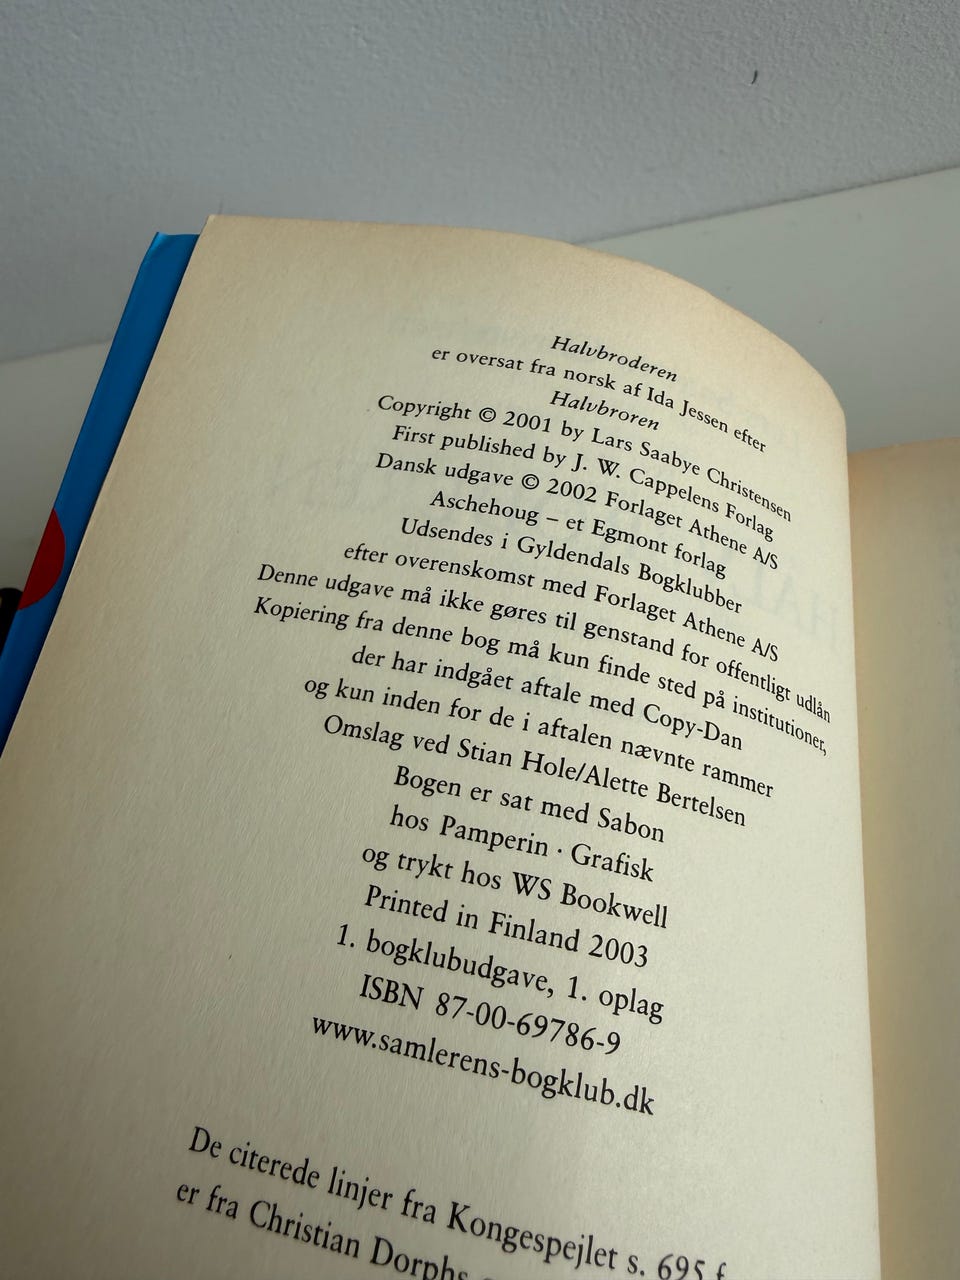 Halvbroderen
er oversat fra norsk af Ida Jessen efter
Halvbroren
Copyright © 2001 by Lars Saabye Christensen
First published by J. W. Cappelens Forlag
Dansk udgave © 2002 Forlaget Athene A/S
Aschehoug – et Egmont forlag
Udsendes i Gyldendals Bogklubber
efter overenskomst med Forlaget Athene A/S
Denne udgave må ikke gøres til genstand for offentligt udlån
Kopiering fra denne bog må kun finde sted på institutioner,
der har indgået aftale med Copy-Dan
og kun inden for de i aftalen nævnte rammer
Omslag ved Stian Hole/Alette Bertelsen
Bogen er sat med Sabon
hos Pamperin · Grafisk
og trykt hos WS Bookwell
Printed in Finland 2003
1. bogklubudgave, 1. oplag
ISBN 87-00-69786-9
www.samlerens-bogklub.dk
De citerede linjer fra Kongespejlet s. 695 f
er fra Christian Dorphs